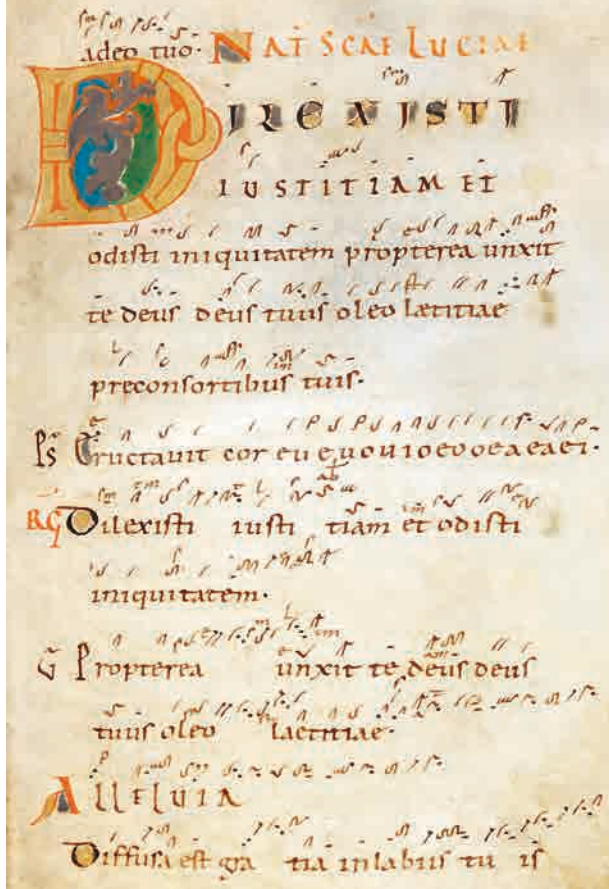 adeo tuo. NAT SCAE LUCIAE
DILEXISTI
IUSTITIAM ET
odisti iniquitatem propterea unxit
te deus deus tuus oleo lætitiae
preconsortibus tuis.
Ps Eructauit cor eu e u o u i o eo oe a e a ei.
RG Dilexisti iusti tiam et odisti
iniquitatem.
V Propterea unxit te deus deus
tuus oleo laetitiae.
Alleluia
Diffusa est gra tia in labiis tu is